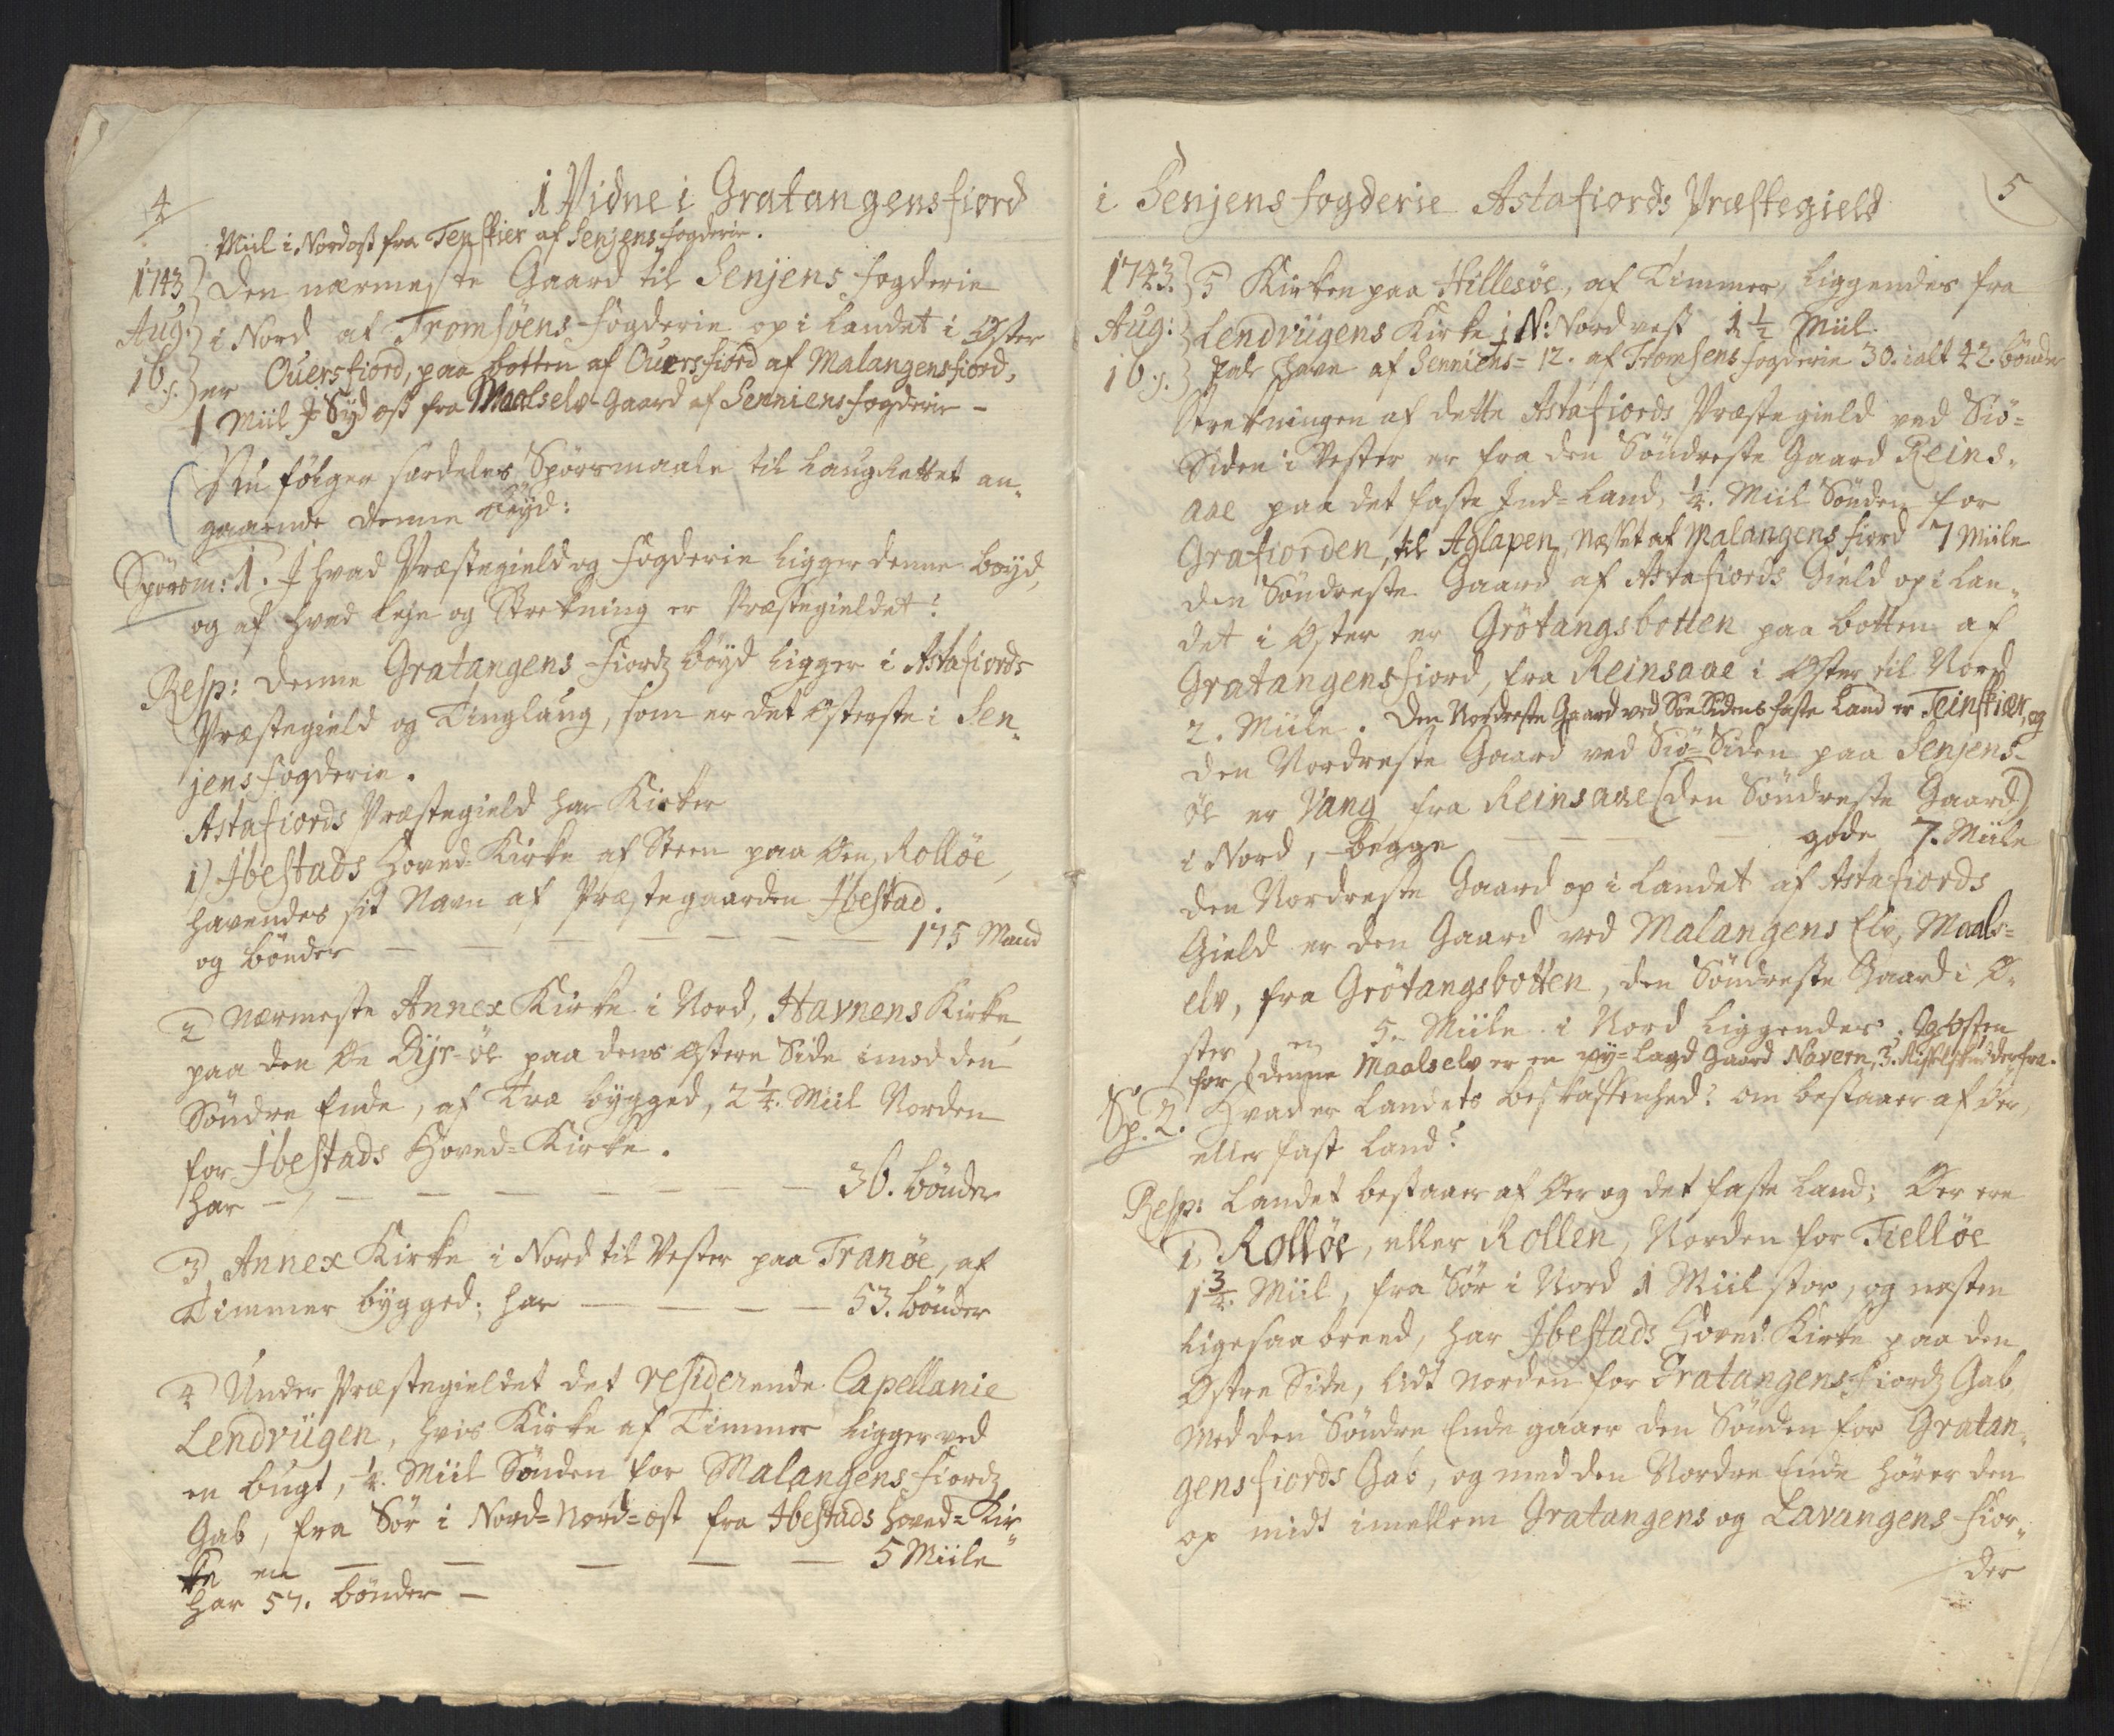 4
1 Vidne i Gratangensfiord
Miil i Nordost fra Tenskier af Senjens fogderie.
1743 Den nærmeste Gaard til Senjens fogderie
Aug: i Nord af Tromsøens fogderie op i Landet i Øster
16.s. er Ouersfiord, paa botten af Ouersfiord af Malangensfiord,
1 Miil J Syd ost fra Maalselv-Gaard af Senniens fogderie -
Nu følger særdeles Spørsmaale til Laugrettet an-
gaaende denne bøyd:
Spørsm: 1. J hvad Præstegield og fogderie ligger denne bøyd,
og af hvad leje og Strekning er Præstegieldet?
Resp: denne Gratangens fiords bøyd ligger i Astafiords
Præstegield og Tinglaug, som er det østerste i Sen-
jens fogderie.
Astafiords Præstegield har Kirker
1) Jbestads Hoved-Kirke af Steen paa Øen, Rolløe,
havendes sit Navn af Præstegaarden Jbestad.
og bønder — — — — — — — 175 Mand
2 Nærmeste Annex Kirke i Nord, Havnens Kirke,
paa den Øe Dyr-øe paa dens østere Side imod den
Søndre Ende, af Træ bygged, 2 1/4. Miil Norden
for Jbestads Hoved-Kirke.
har — — — — — — — 36. bønder
3, Annex Kirke i Nord til Vester paa Tranøe, af
Timmer bygged; har — — — — 53. bønder
4 Under Præstegieldet det residerende Capellanie
Lendvügen, hvis Kirke af Timmer ligger ved
en bugt, 1/4. Miil Sønden for Malangens fiords
Gab, fra Sør i Nord-Nord-ost fra Jbestads hoved-Kir-
ke en — — — — — 5 Miile
har 57. bønder -
5
i Senjens fogderie Astafiords Præstegield
1743. 5 Kirken paa Hillesøe, af Timmer, liggendes fra
Aug: Lendvügens Kirke i N: Nordvest 1 1/2 Miil.
16.s. have af Senniens- 12. af Tromsens fogderie 30. ialt 42. bønder
Strekningen af dette Astafiords Præstegield ved Siø-
Siden i Vester er fra den Søndreste Gaard Reins-
aae paa det faste Ind-Land, 1/4. Miil Sønden for
Grafiorden, til Aglapen, Næsset af Malangens fiord 7 Miile
den Søndreste Gaard af Astafiords Gield op i Lan-
det i Øster er Grøtangsbotten paa botten af
Gratangensfiord, fra Reinsaae i Øster til Nord
2. Miile. Den Nordreste Gaard ved Søe Sidens faste Land er Teinskiær, og
den Nordreste Gaard ved Siø-Siden paa Senjens-
øe er Vang fra Reinsaae (den Søndreste Gaard)
i Nord, begge — — — gode 7. Miile
den Nordreste Gaard op i Landet af Astafiords
Gield er den Gaard ved Malangens Elv, Maals-
elv, fra Grøtangsbotten, den Søndreste Gaard i Ø-
ster, en 5. Miile i Nord liggendes; Og østen
for denne Maalselv er en ny-lagd Gaard Navern, 3. derfra.
Sp. 2. Hvad er Landets beskaffenhed? om bestaaer af Øer,
eller fast Land?
Resp: Landet bestaaer af Øer og det faste Land; Øer ere
1. Rolløe, eller Rollen, Norden for Fielløe
1 3/4. Miil, fra Sør i Nord 1 Miil stor, og næsten
ligesaa breed, har Jbestads Hoved-Kirke paa den
Østre Side, lidt Norden for Gratangensfiords Gab,
Med den Søndre Ende gaaer den Sønden for Gratan-
gensfiords Gab, og med den Nordre Ende hører den
op midt imellem Gratangens og Lavangens fior-
der